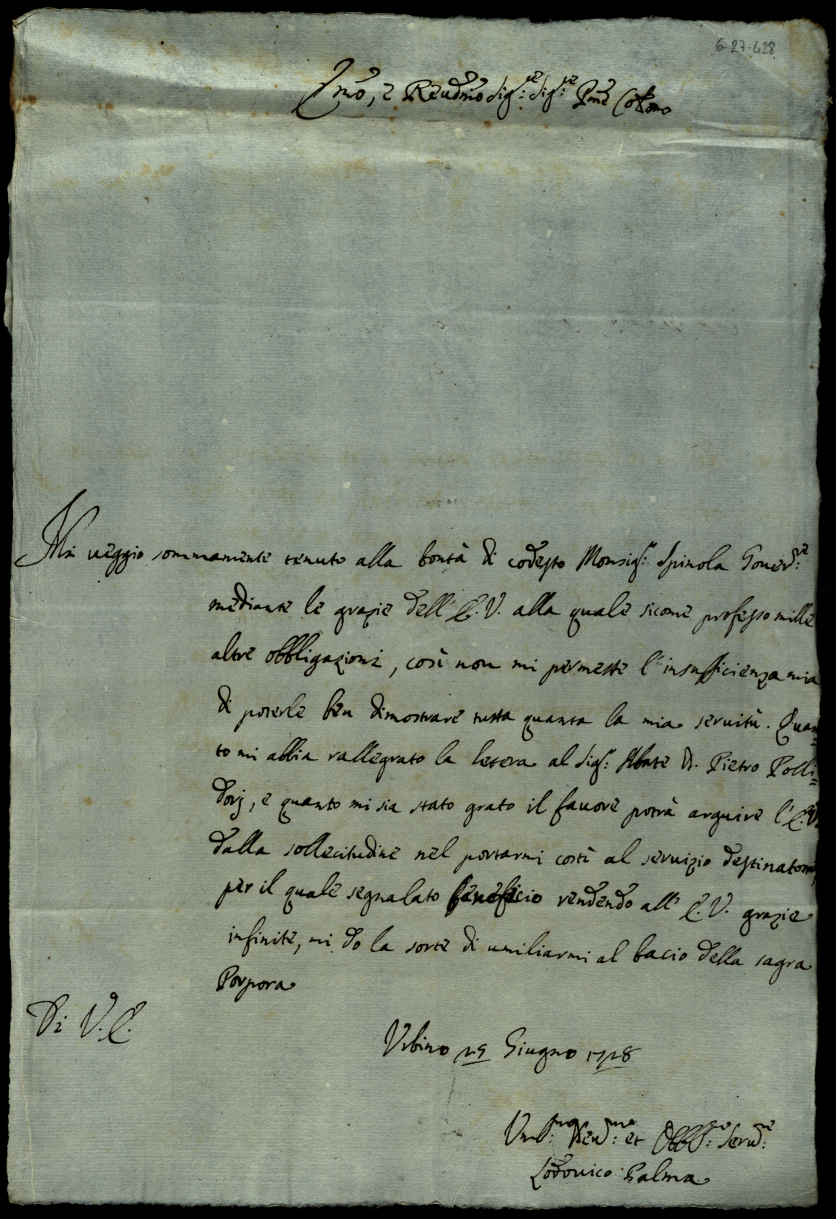 6-27-428
Emo, e Reudmo Sig:re Sig:re Pne Colmo
Mi veggio sommamente tenuto alla bontà di codesto Monsig:r Spinola Gouer:re
mediante le grazie dell' E.V. alla quale sicome professo mille
altre obbligazioni, così non mi permette l'insufficienza mia
di poterle ben dimostrare tutta quanta la mia seruitù. Quan=
to mi abbia rallegrato la letera al Sig:r Abate D. Pietro Polli=
dorj, e quanto mi sia stato grato il fauore potrà arguire l'E.V.
dalla sollecitudine nel portarmi costì al seruizio destinatomi,
per il quale segnalato beneficio rendendo all' E.V. grazie
infinite, mi do la sorte di umiliarmi al bacio della sagra
Porpora
Di V.E.
Urbino Giugno 1728
Um:mo Deu:mo et Obb:mo Seru:re
Lodouico Palma